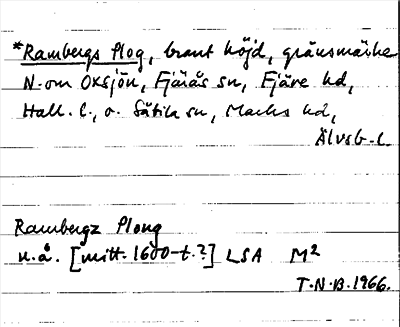 *Rambergs Plog, brant höjd, gränsmärke
N. om Oxsjön, Fjärås sn, Fjäre hd,
Hall. l., o. Sätila sn, Marks hd,
Älvsb. l.
Rambergz Ploug
u.å. [mitt. 1600-t.?] LSA M2
T.N.B. 1966.